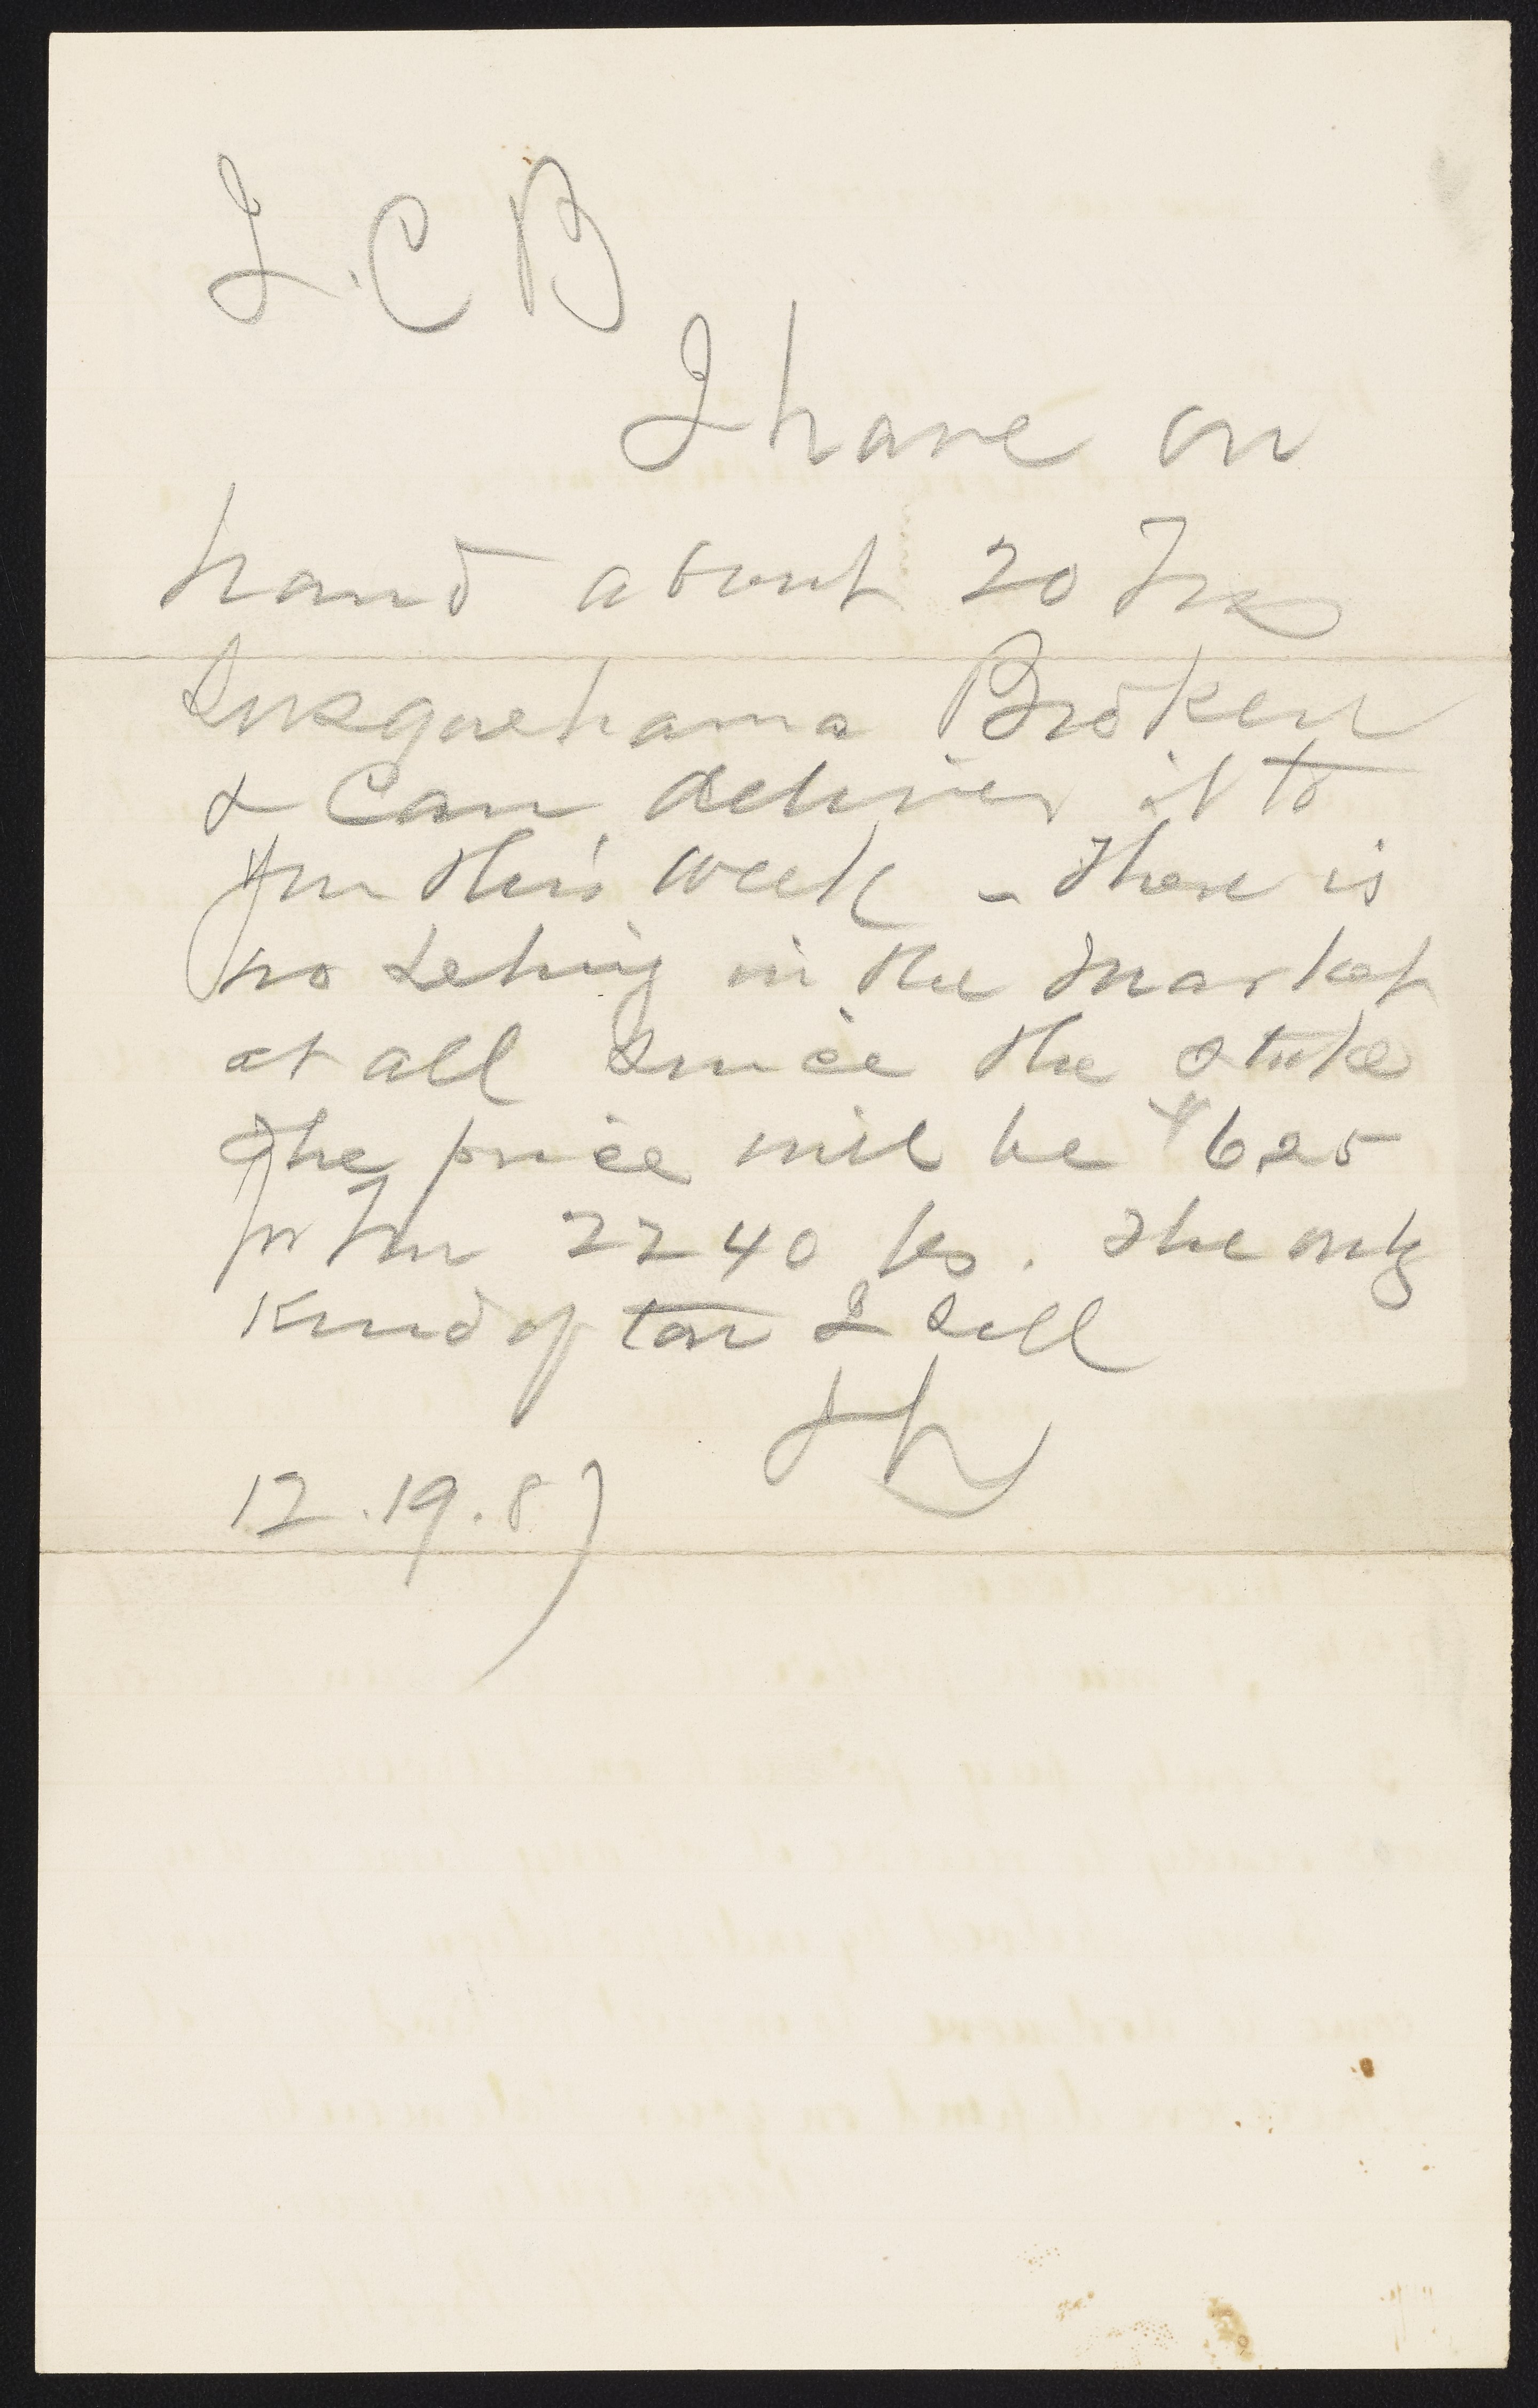 I. C B
I have on
hand about 20 Tns
Susquehanna Broken
& Can deliver it to
you this week - There is
no Lehig in the market
at all since the strike
The price will be $6 25
pr Ton 2240 lbs. The only
Kind of ton I sell
12.19.87